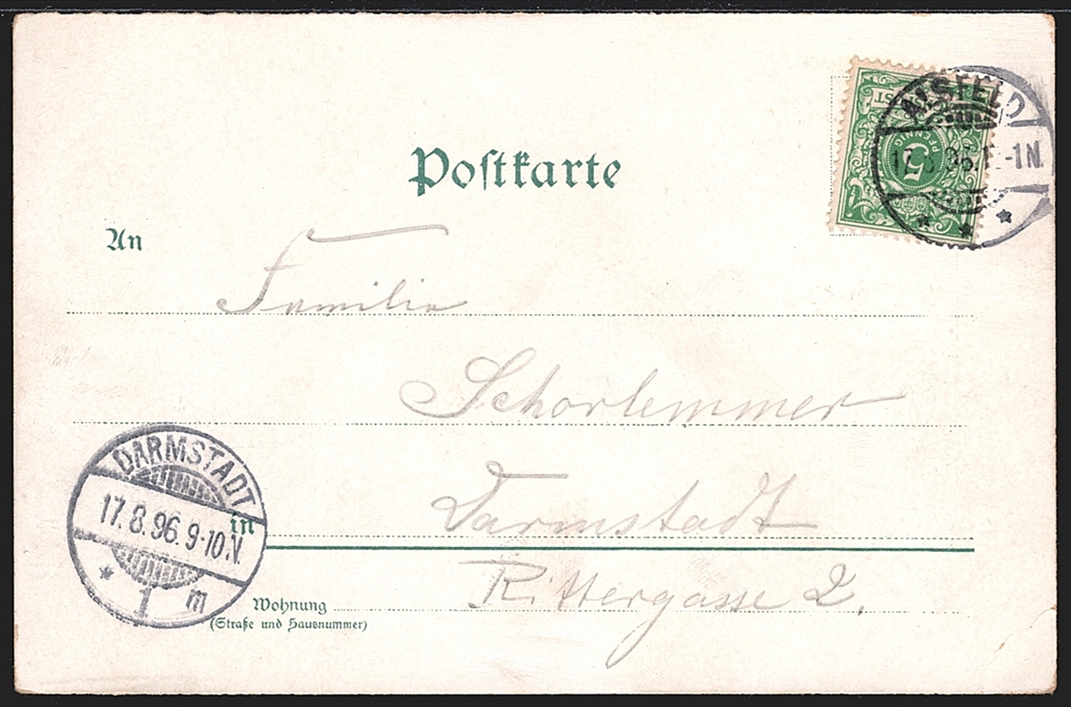 Postkarte
ALSFELD
17.8.96.1-1N.
PFENNIG
5
An
Familie
Schorlemmer
DARMSTADT
17.8.96.9-10.N.
* 1 m
in
Darmstadt
Wohnung
Rittergasse 2.
(Straße und Hausnummer)